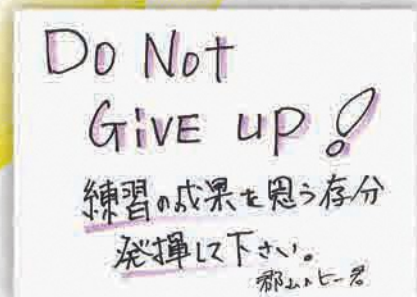 Do Not
GiVE UP!
練習の成果を思う存分
発揮して下さい。
郡山ヒー君